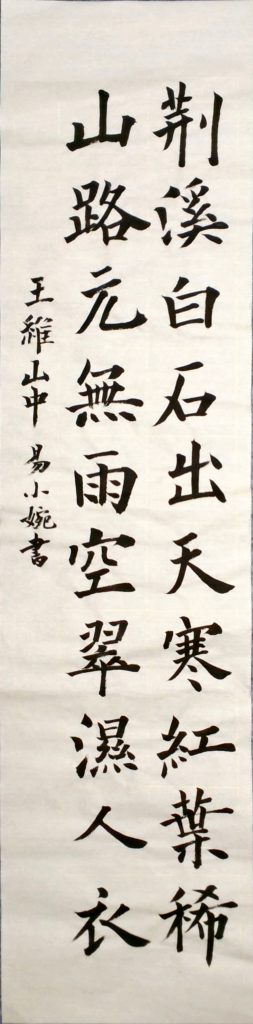 荆溪白石出天寒紅葉稀
山路元無雨空翠濕人衣
王維山中 易小婉書